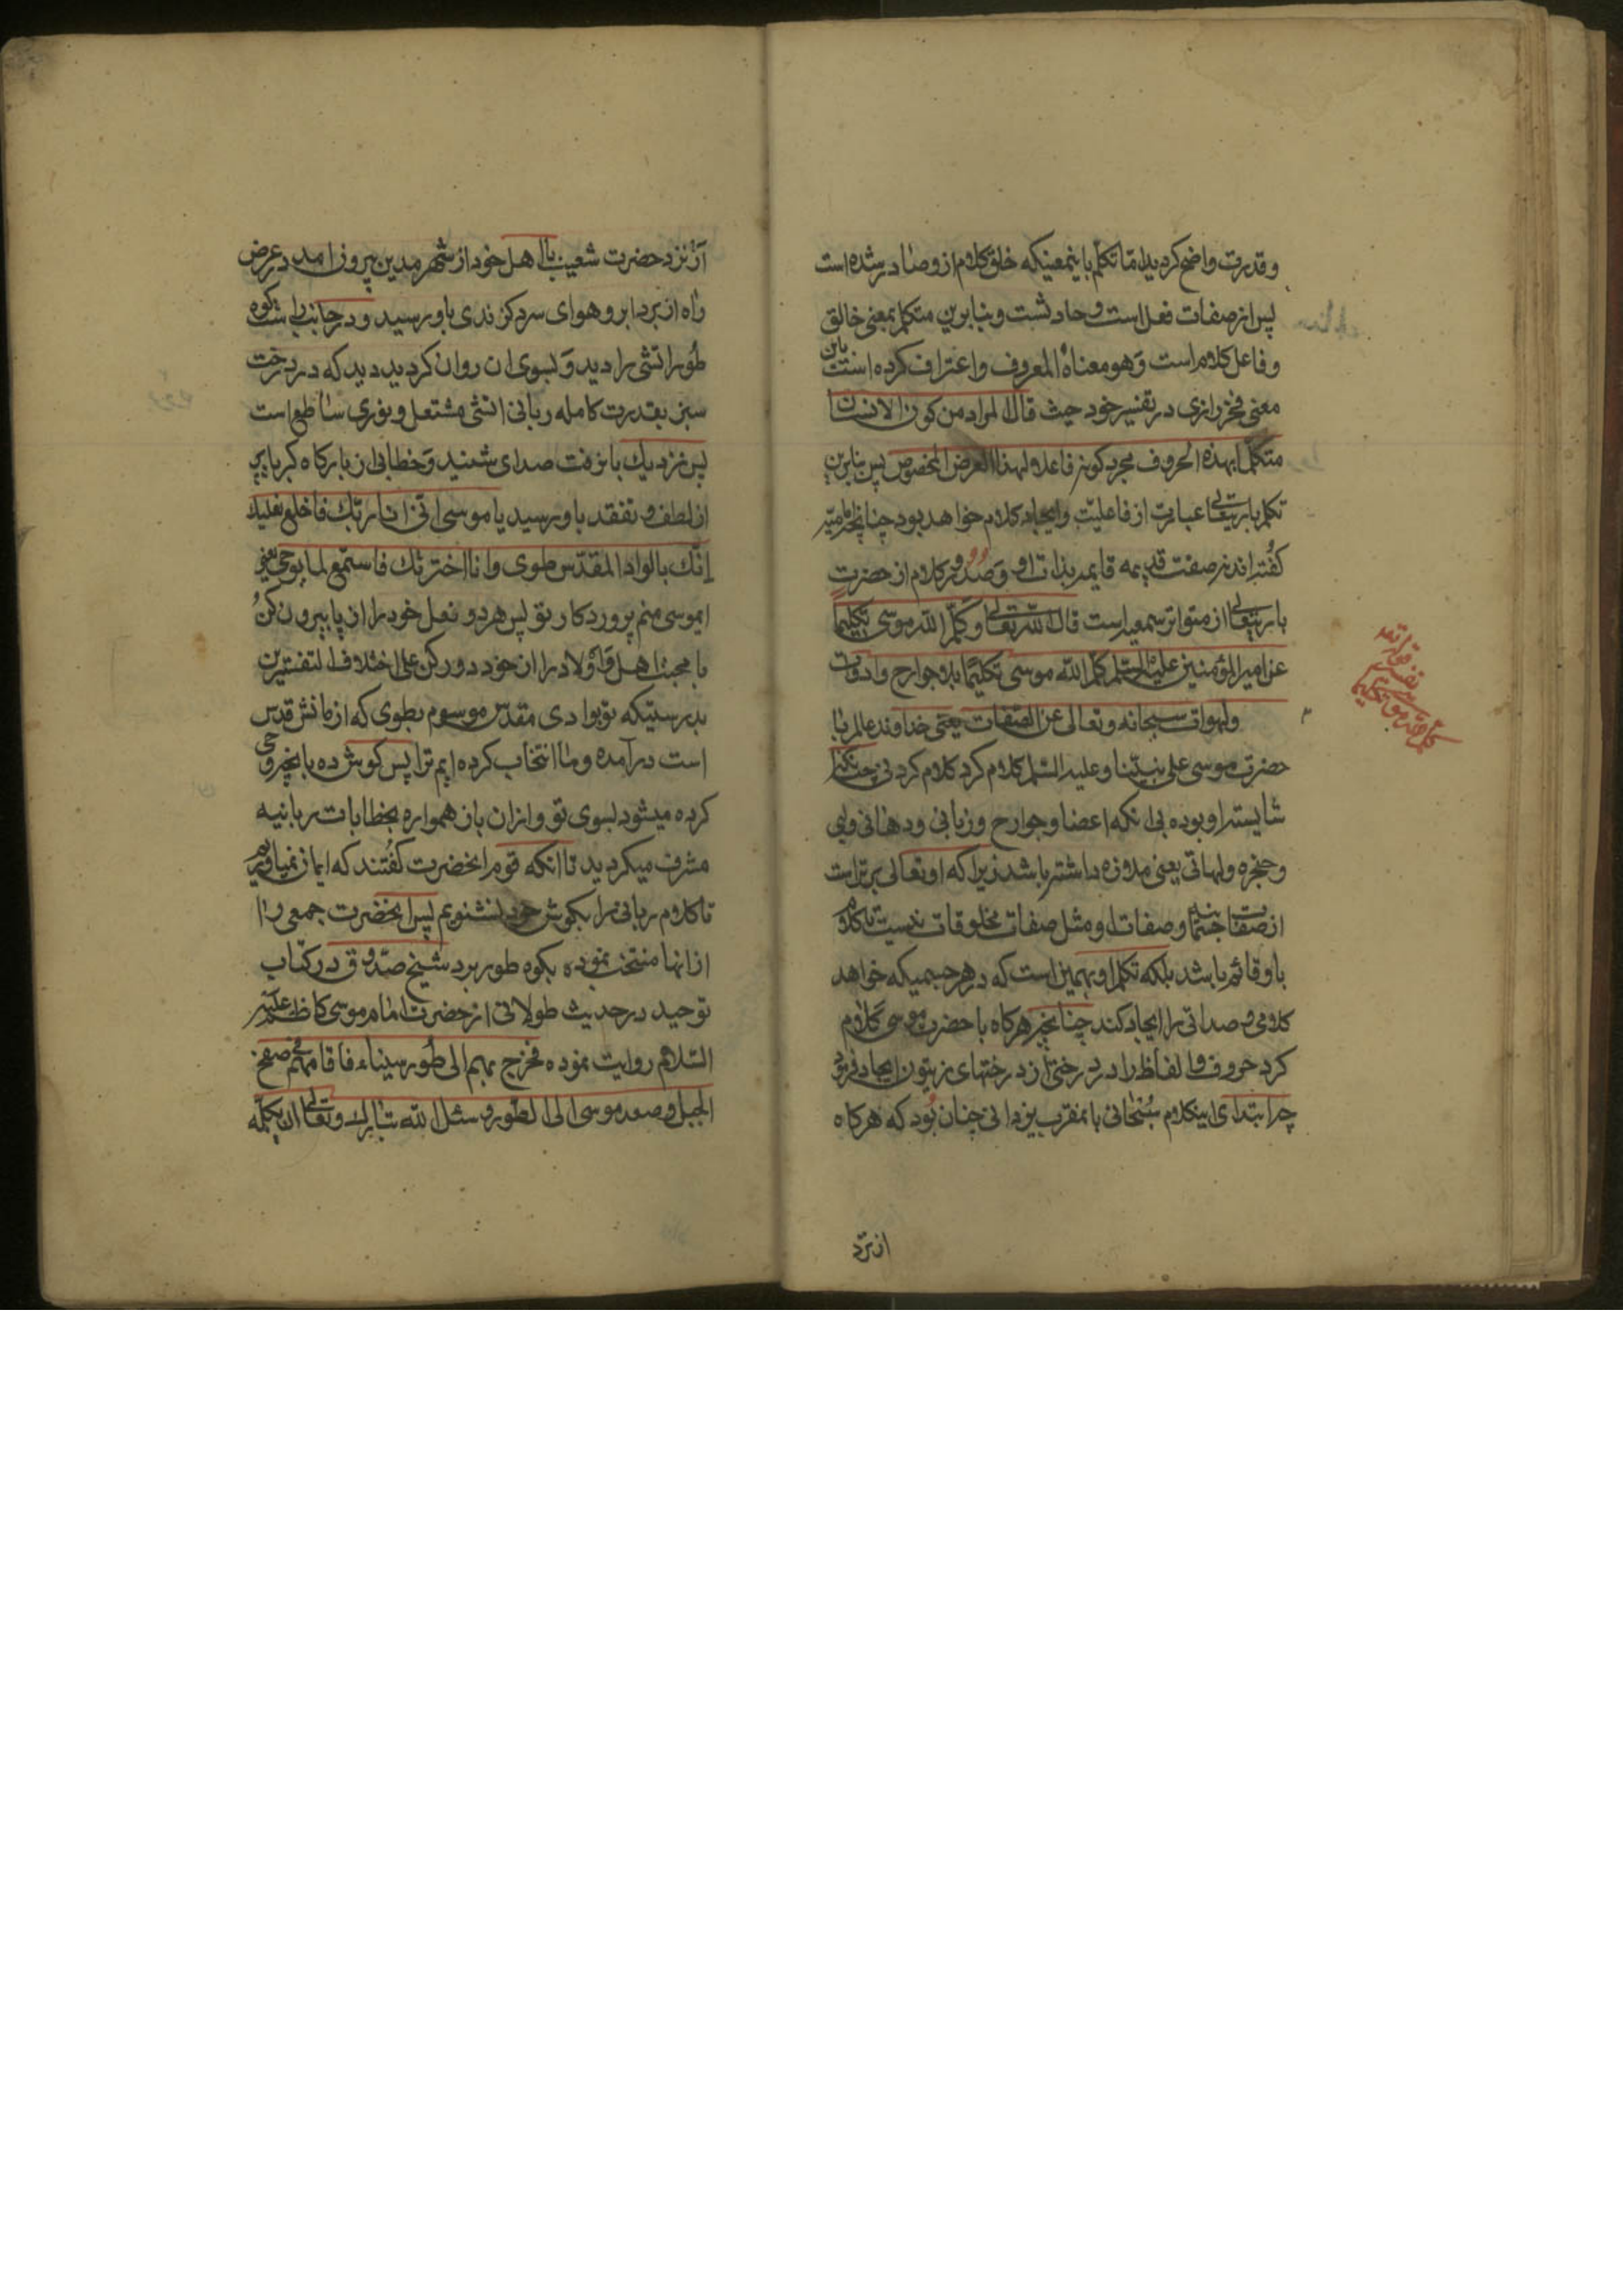 و قدرت واضح کردید اما تکلم باینمعنیکه خلق کلام ازو صادر شده است
پس از صفات فعل است و حادثست و بنابرین متکلم بمعنی خالق
و فاعل کلام است وَ هو معناهُ المعروف و اعتراف کرده است باین
معنی فخر رازی در تفسیر خود حیث قال المراد من کون الانسان
متکلما بهذه الحروف مجرد کونه فاعلا لهذا الغرض المخصوص پس بنابرین
تکلم باریتعالی عبارت از فاعلیّت و ایجاد کلام خواهد بود چنانچه امامیّه
کفُته اند نه صفت قدیمه قایمه بذات او وَ صُدُور کلام از حضرتِ
باریتعالی از متواتر سمعیه است قال اللّه تعالی و کلّم اللّه موسی تکلیما
عن امیرالمؤمنین علیه السّلم کلّم اللّه موسی تکلیمًا بلا جوارح و ادوات
و لهوات سبحانه و تعالی عن الصّفات یعنی خداوند عالم با
حضرت موسی علی نبیّنا و علیه السّلم کلام کرد کلام کردنی چنانکه
شایسته او بوده بی انکه اعضا و جوارح و زبانی و دهانی و لبی
و حنجره و لهاتی یعنی ملازه داشته باشد زیرا که او تعالی برتر است
از صفات جسم و صفات او مثل صفات مخلوقات نیست تا کلام
باو قائم باشد بلکه تکلم او بهمین است که در هر جسمیکه خواهد
کلامی و صداتی را ایجاد کند چنانچه هرکاه با حضرت موسی کلام
کرد حروف و الفاظ را در درختی از درختهای زیتون ایجاد فرمود
چرا ابتدای اینکلام سُبحانی بامقرب یزدانی چنان بُود که هرکاه
از نزد
کلم اللّه موسی تکلیما
آز نزد حضرت شعیب با اهل خود از شهر مدین بیرون امد در عرض
راه از برد ابر و هوای سرد کزندی باو رسید و در جانب راست کوه
طُور اتشی را دید وَ بسوی ان روان کردید دید که در درخت
سبز بقدرت کامله ربانی اتشی مشتعل و نوری ساطع است
پس نزدیك بان رفت صدای شنید وَ خطابی از بارکاه کبریا پر
از لطف و تفقد باو رسید یا موسی انّی انا ربّك فاخلع نعلیك
اِنّك بالواد المقدّس طوی و انا اخترتك فاستمع لما یوحی یعنی
ایموسی منم پروردکار تو پس هر دو نعل خود را از پا بیرون کنُ
یا محبت اهل وَ اولاد را از خود دور کن علی اختلاف التفسیرین
بدرستیکه تو بوادی مقدّس موسوم بطوی که از مانش قدس
است در آمده و ما انتخاب کرده ایم ترا پس کوش ده بانچه وحی
کرده میشود بسوی تو و ازان باز همواره بخطابات ربانیه
مشرف میکردید تا انکه قوم انحضرت کفُتند که ایمان نمیاوریم
تا کلام ربانی را بکوش خود نشنویم پس انحضرت جمعی را
از انها منتخب نموده بکوه طور برد شیخ صدّوق در کتاب
توحید در حدیث طولانی از حضرت امام موسی کاظم علیه
السّلام روایت نموده فخرج بهم الی طُور سیناء فاقامهم فی صفح
الجبل و صعد موسی الی الطّور و سئل اللّه تبارك و تعالی ان یکلّمه